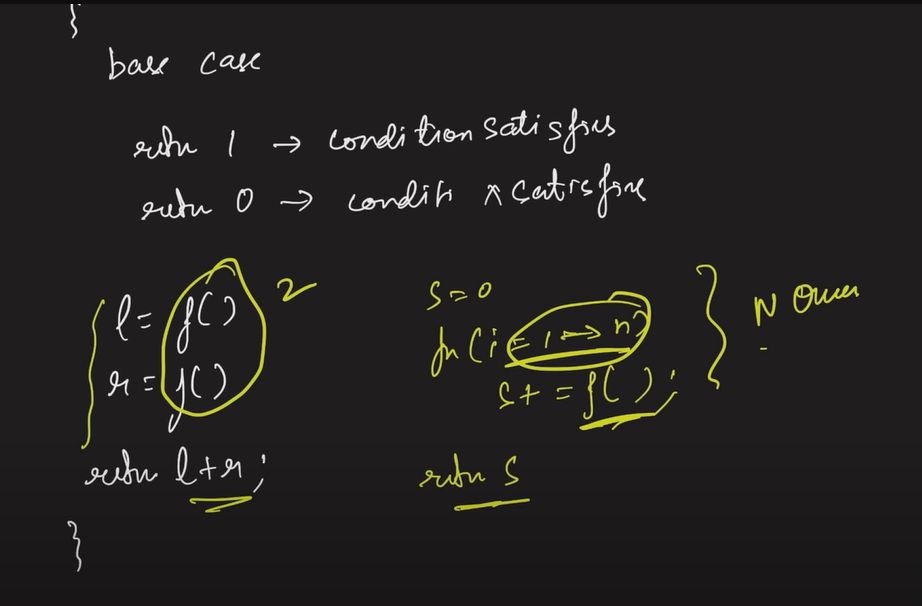 {
base case
return 1 → condition satisfies
return 0 → conditi x satisfies
l = f() 2
r = f()
return l+r;
s=0
for (i = 1 → n)
s+ = f();
} N
return s
}